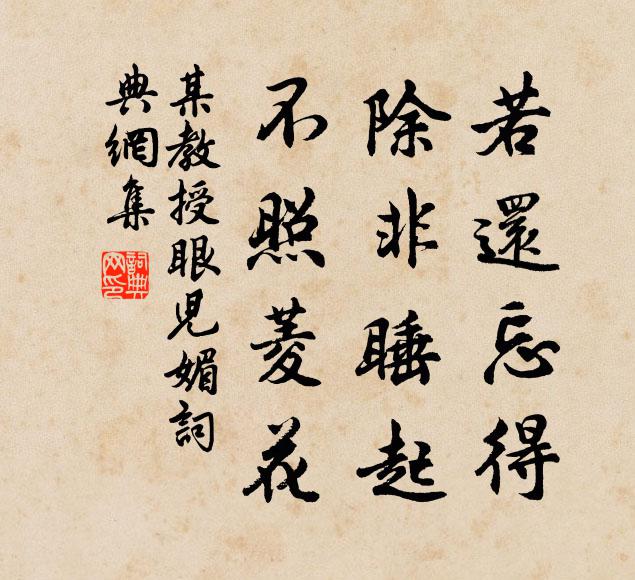 若還忘得
除非睡起
不照菱花
某教授眼兒媚詞
典網集
詞典網印